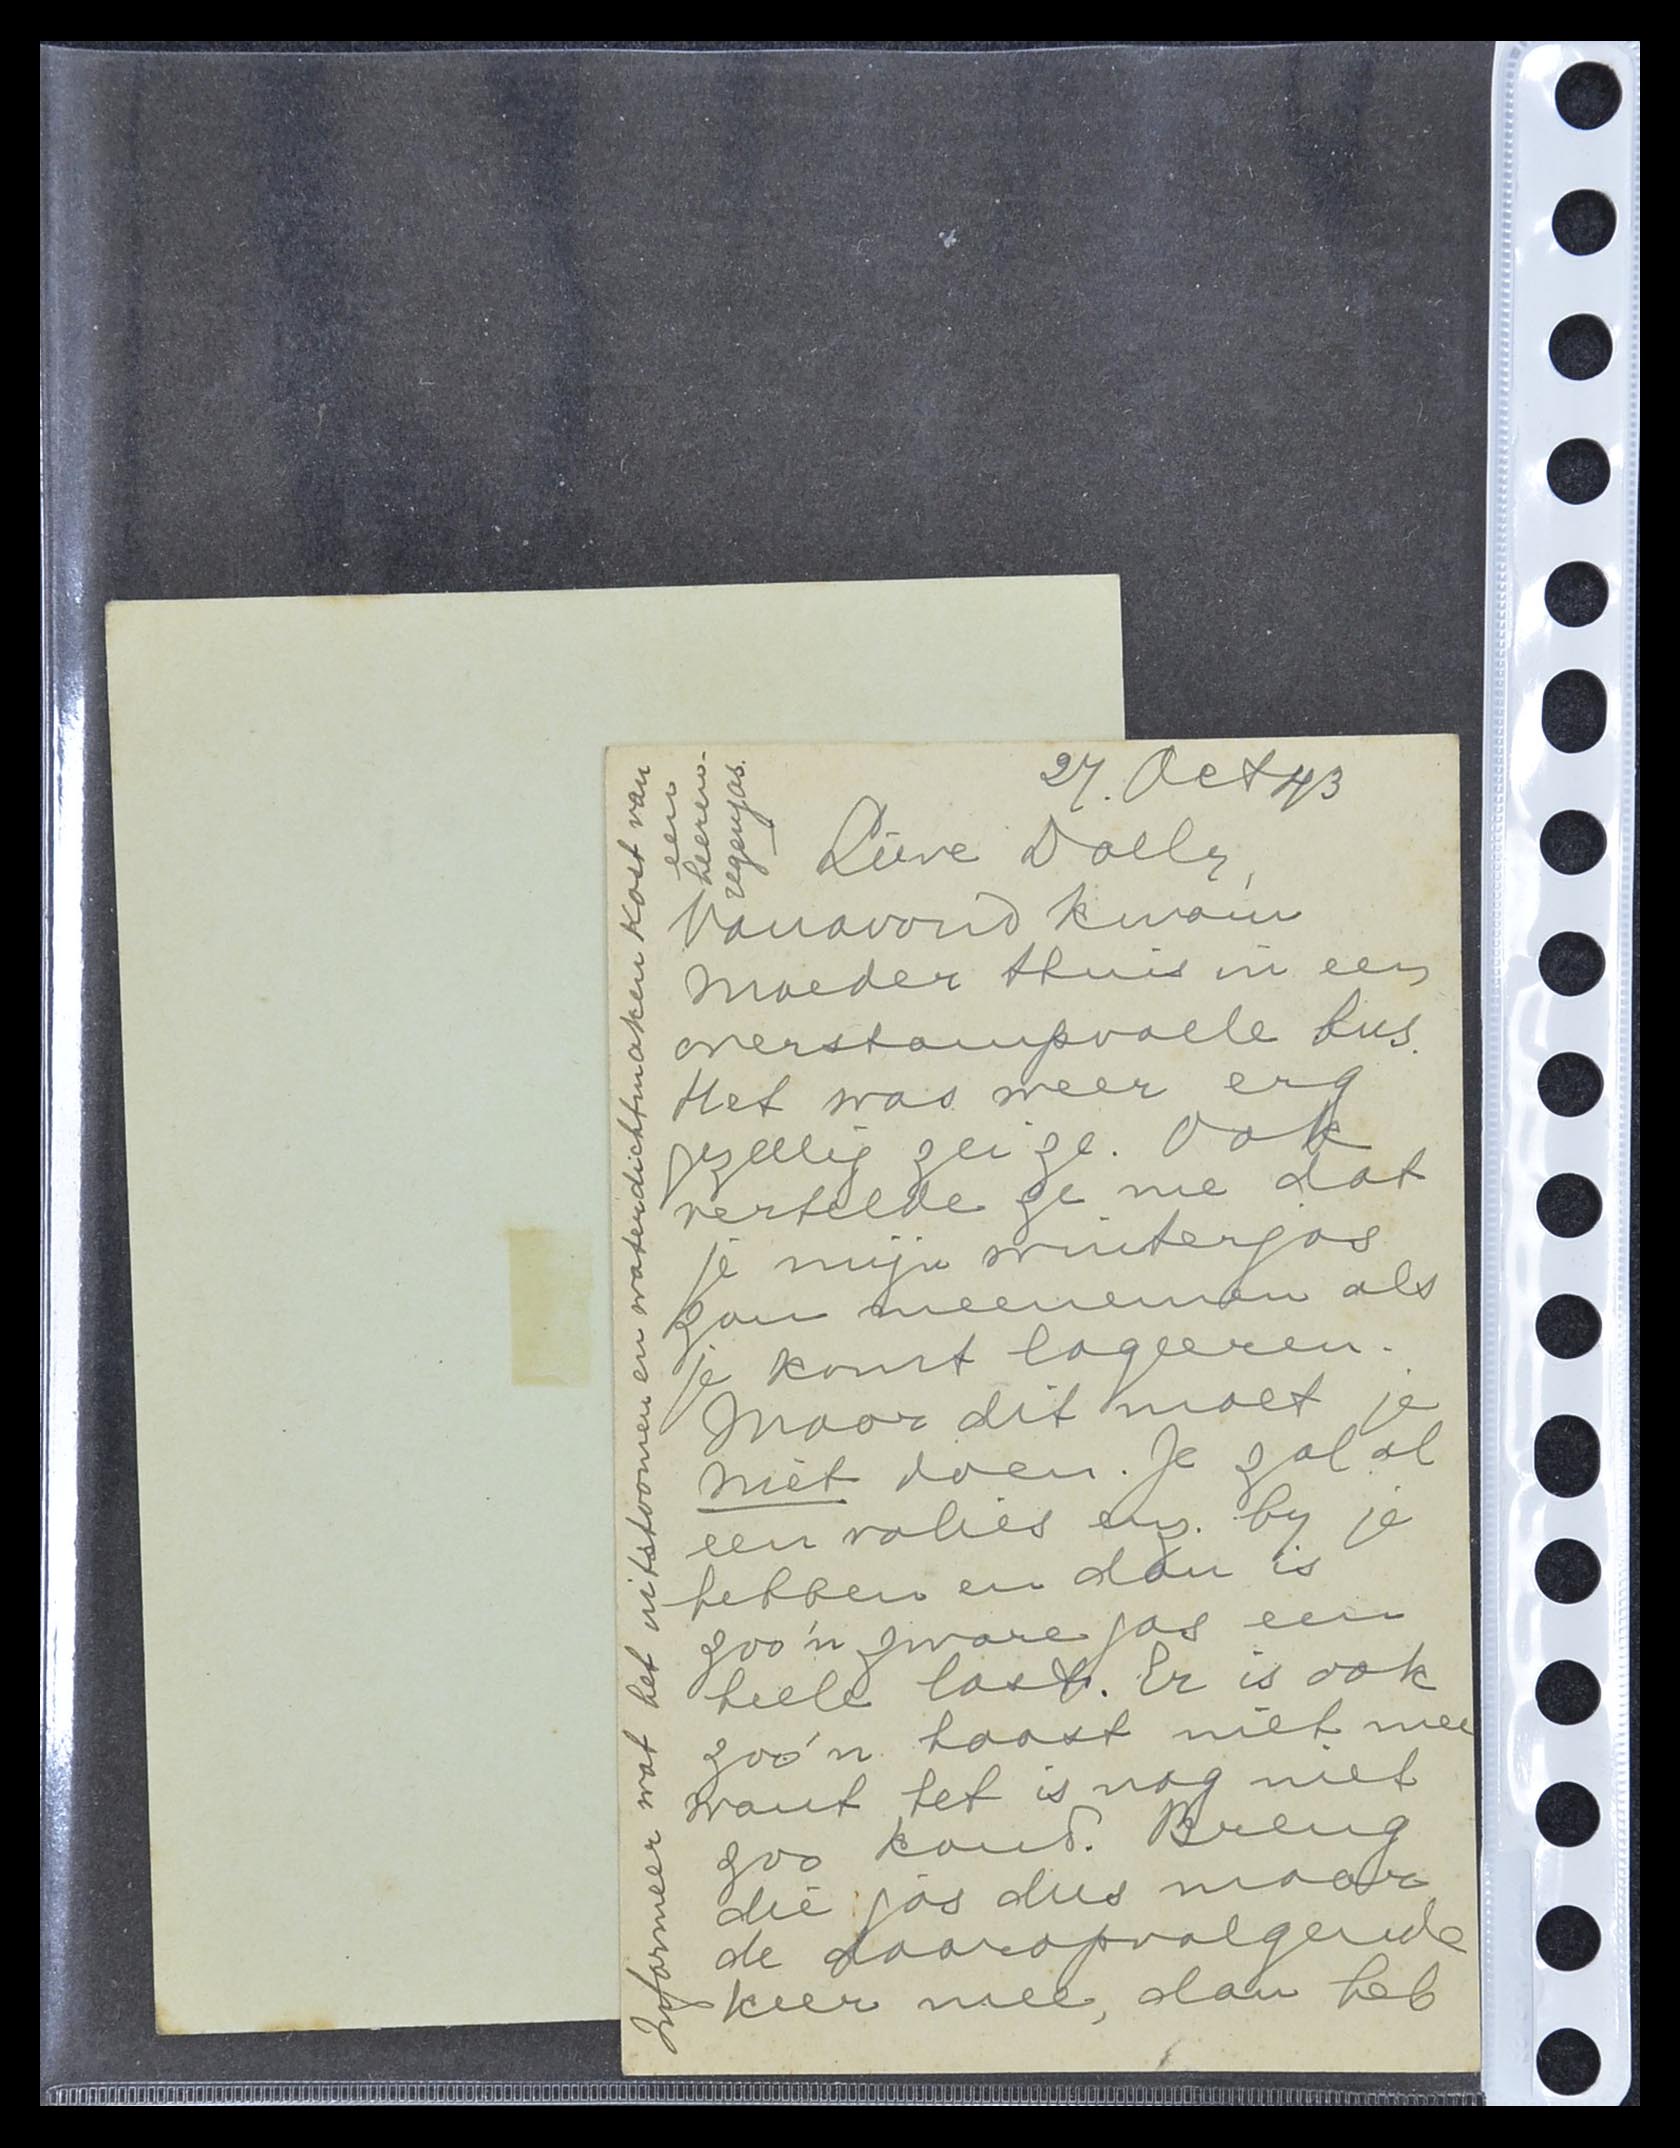 27. Oct 43
Lieve Dolly,
Vanavond kwam
Moeder thuis in een
overstampvolle bus.
Het was weer erg
gezellig zei ze. Ook
vertelde ze me dat
je mijn winterjas
zou meenemen als
je komt logeeren.
Maar dit moet je
niet doen. Je zal al
een valies enz. by je
hebben en dan is
zoo'n zware jas een
heele last. Er is ook
zoo'n haast niet mee
want het is nog niet
zoo koud. Breng
die jas dus maar
de daaropvolgende
keer mee, dan heb
Informeer wat het uitstoomen en waterdichtmaken kost van
een
heeren-
regenjas.